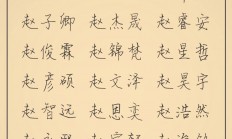 赵子卿 赵杰晟 赵睿安
赵俊霖 赵锦梵 赵星哲
赵彦硕 赵文泽 赵昊宇
赵智远 赵恩奕 赵浩然